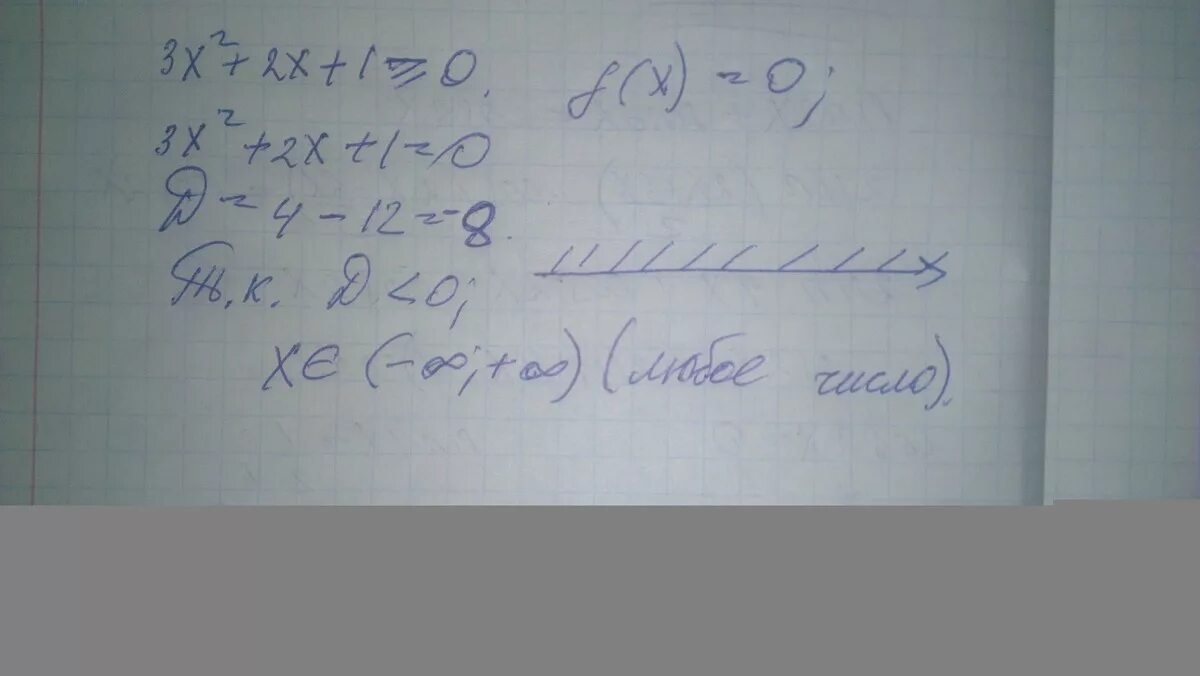 3x² + 2x + 1 ⩾ 0. f(x) = 0;
3x² + 2x + 1 = 0
D = 4 - 12 = -8.
Т.к. D < 0;
x ∈ (-∞; +∞) (любое число).